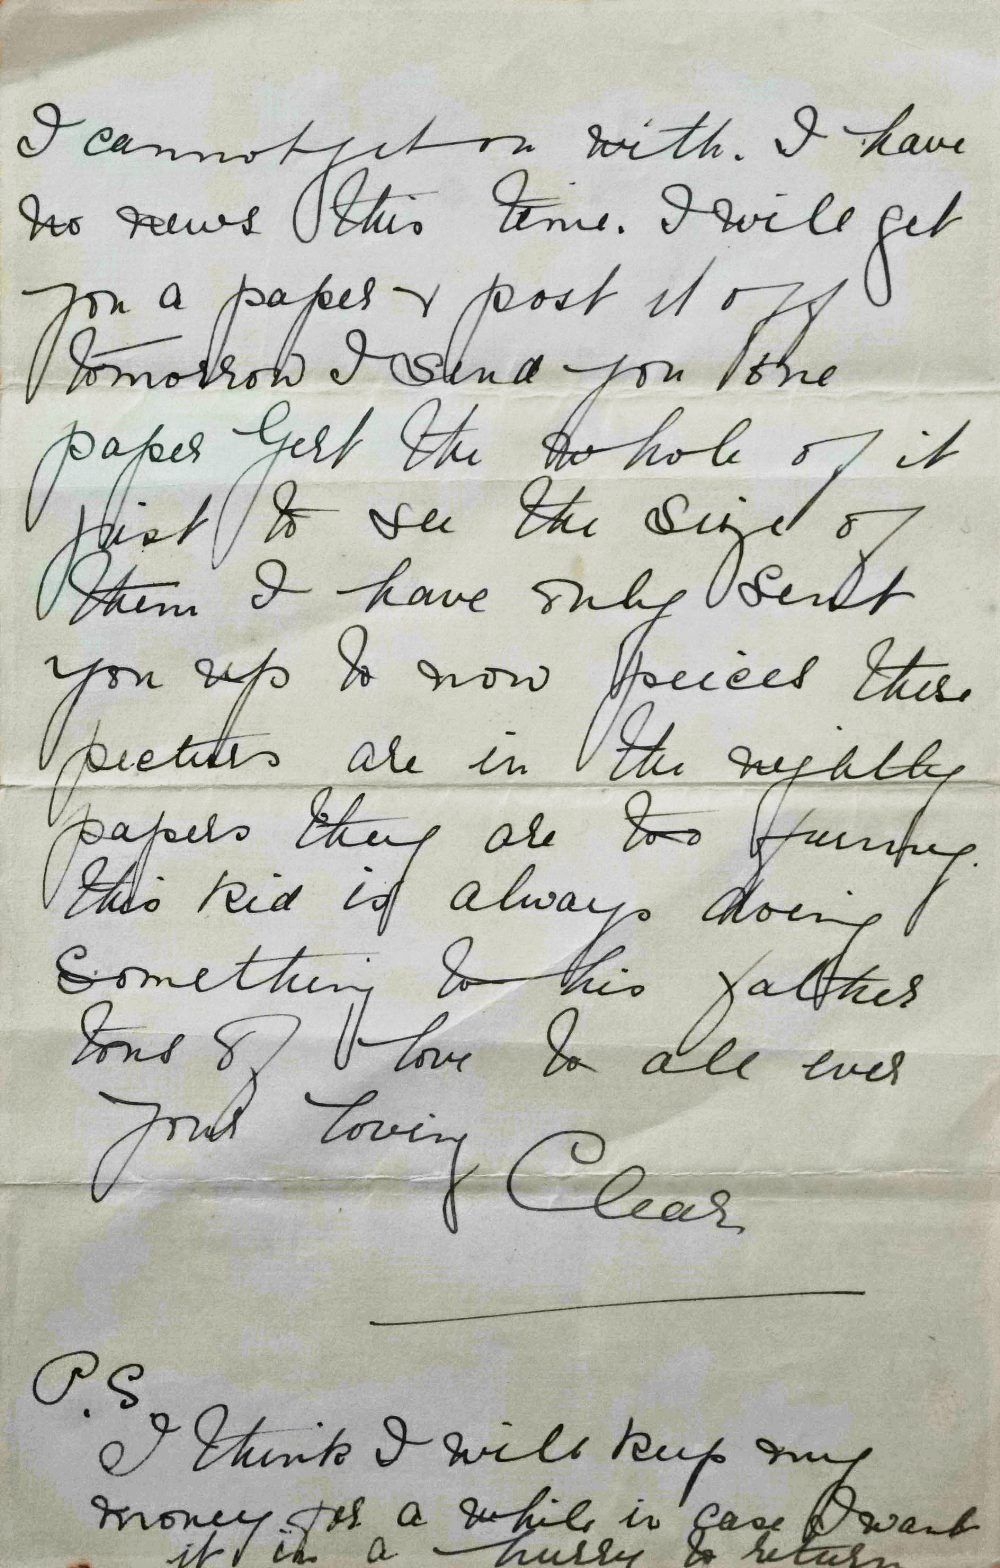 I cannot get on with. I have
no news this time. I will get
you a paper & post it off
tomorrow I send you one
paper Gert the whole of it
just to see the size of
them I have only sent
you up to now peices these
pictures are in the nightly
papers they are too funny.
this kid is always doing
something to his father
tons of love to all ever
your loving
Clear
P.S
I think I will keep my
money for a while in case I want
it in a hurry to return